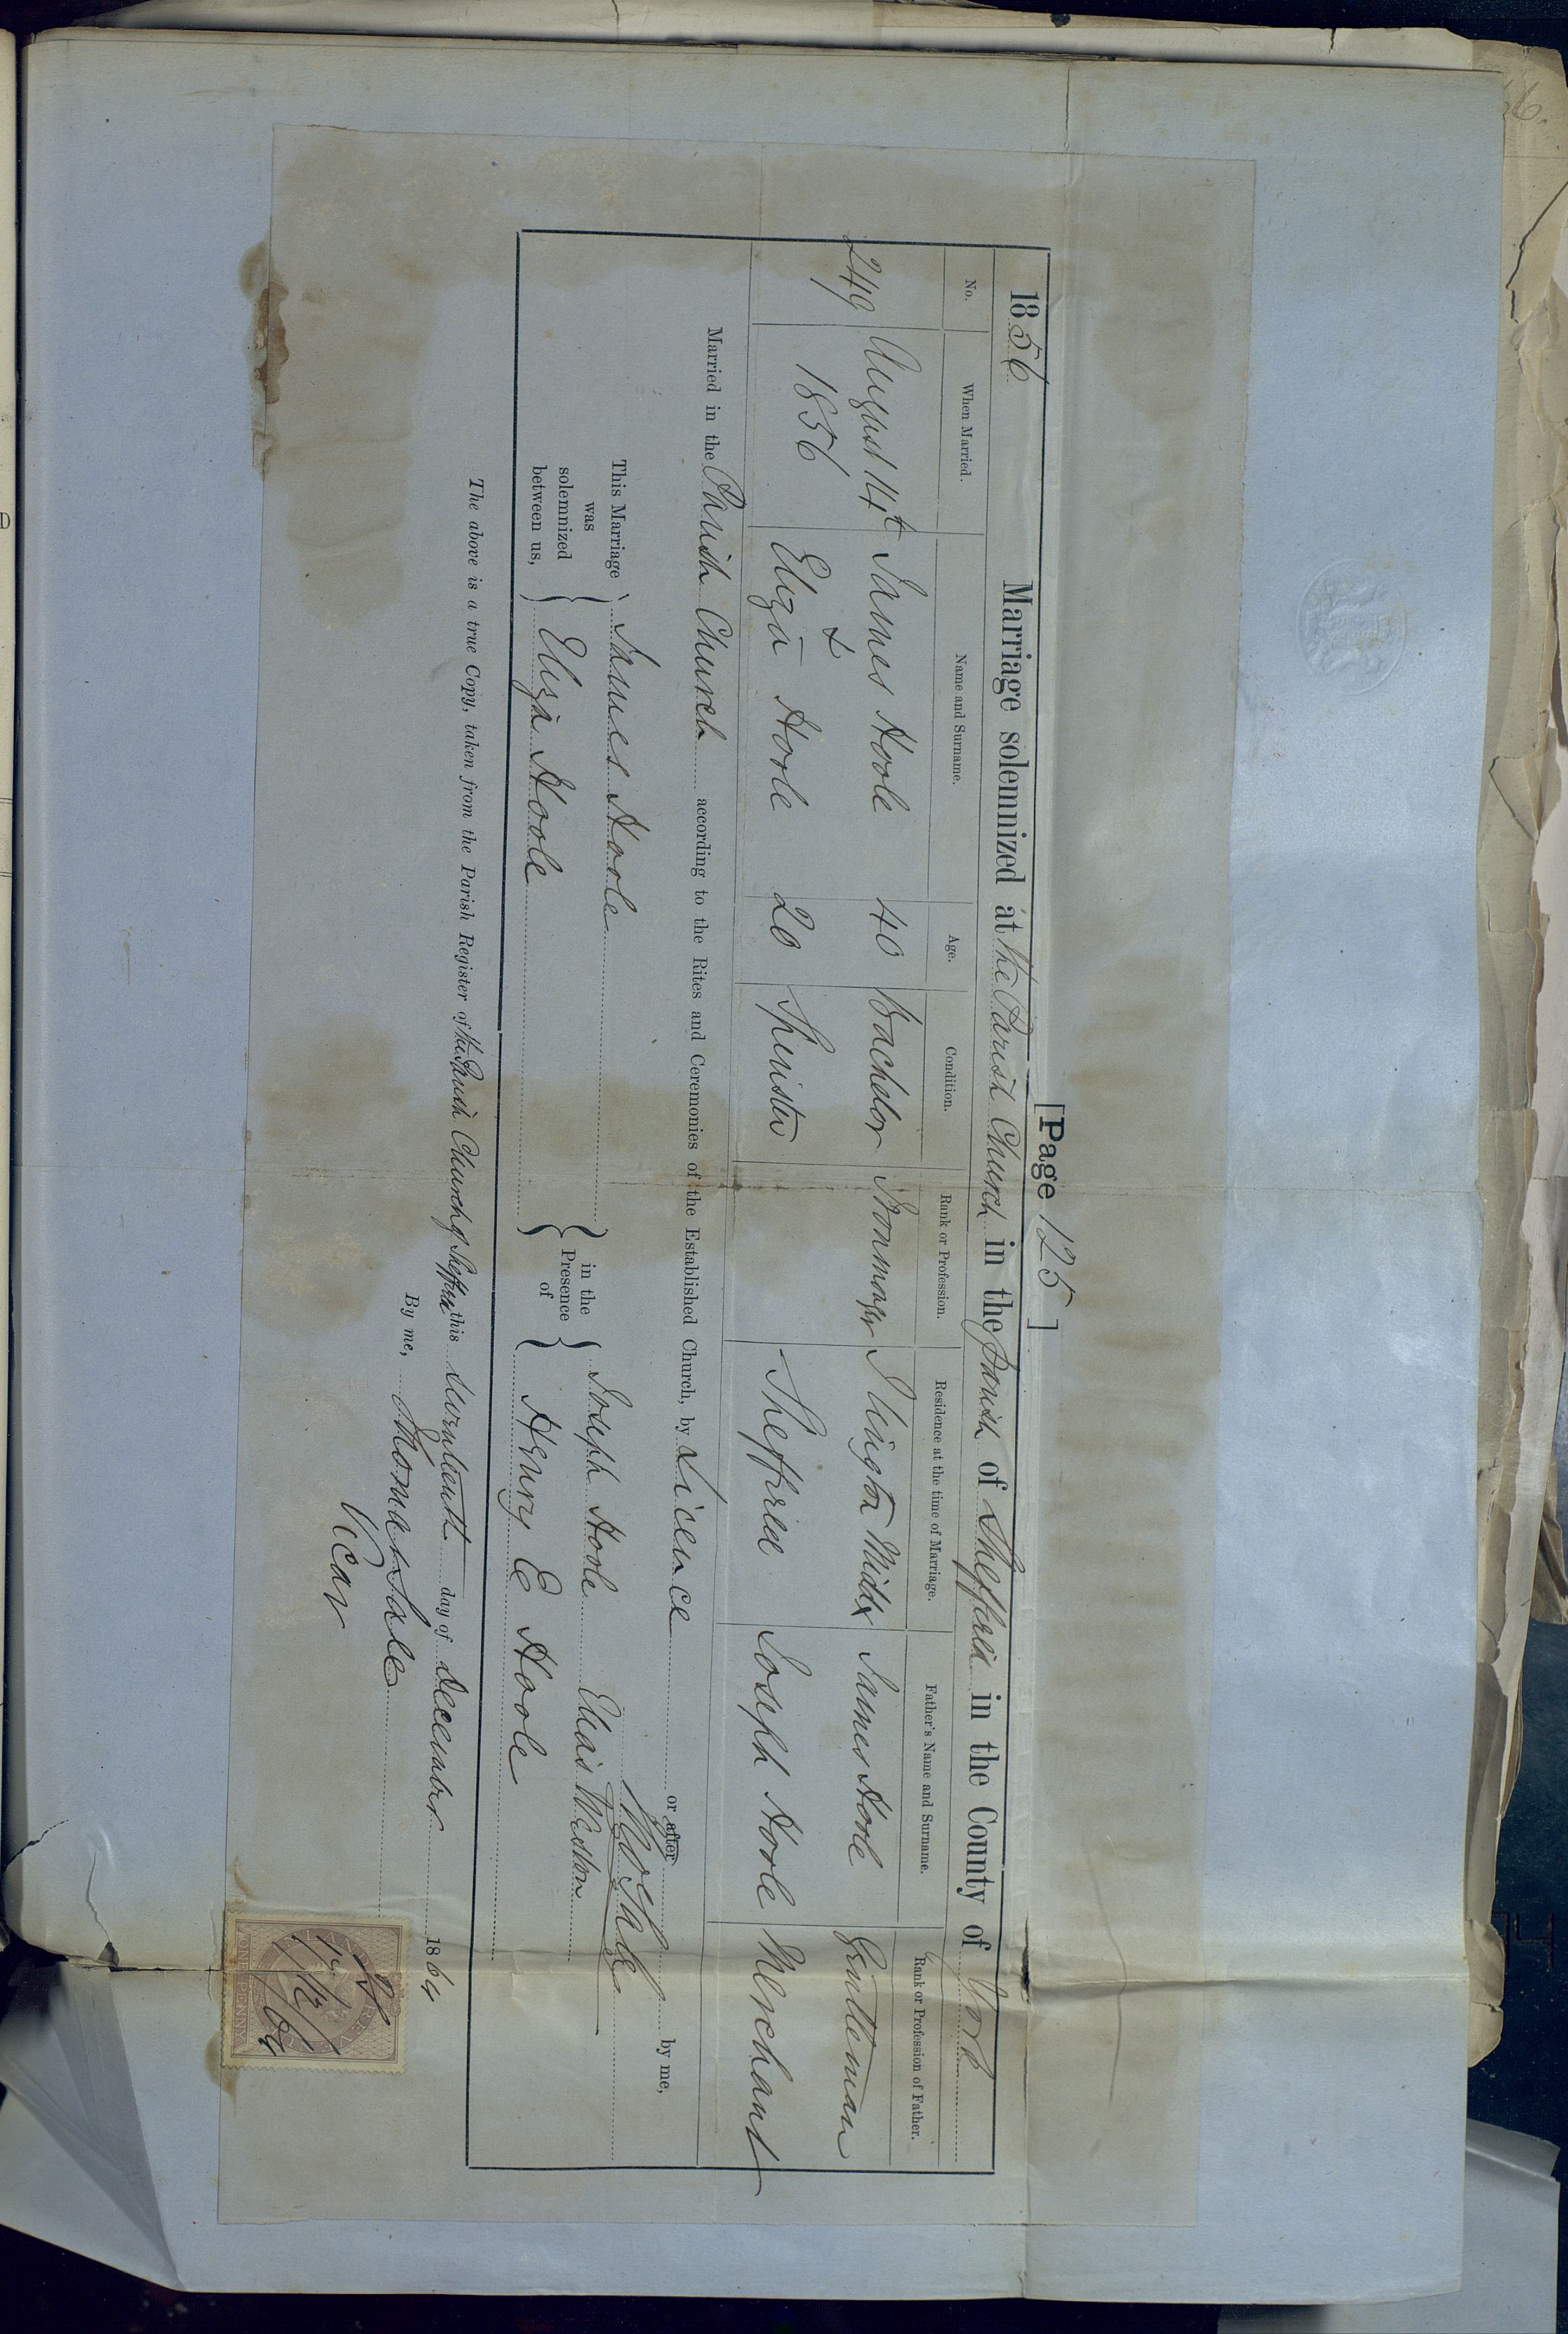 [Page 125]
1856 Marriage solemnized at the Parish Church in the Parish of Sheffield in the County of York
No. When Married. Name and Surname. Age. Condition. Rank or Profession. Residence at the time of Marriage. Father's Name and Surname. Rank or Profession of Father.
249 August 14t James Hoole 40 Bachelor Ironmonger Islington Middx James Hoole Gentleman
1856 &
Eliza Hoole 20 Spinster Sheffield Joseph Hoole Merchant
Married in the Parish Church according to the Rites and Ceremonies of the Established Church, by Licence or after by me,
This Marriage was solemnized between us,
James Hoole
Eliza Hoole
in the Presence of
Joseph Hoole Elias Weston
Henry E Hoole
The above is a true Copy, taken from the Parish Register of the Parish Church of Sheffield this seventeenth day of December 1864
By me, Thomas Sale
Vicar
ONE PENNY
17/12/64